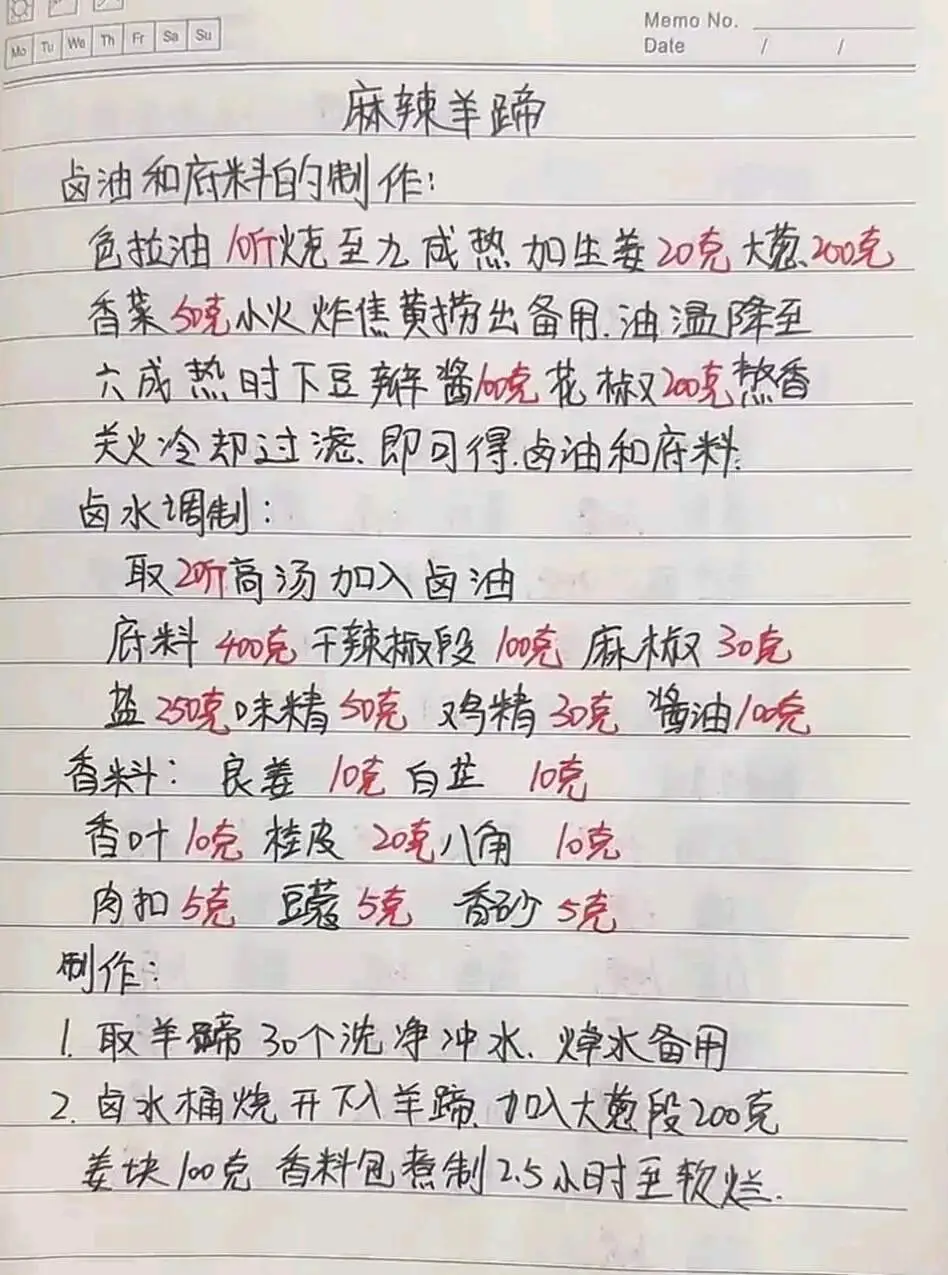 Memo No.
Mo Tu We Th Fr Sa Su
Date / /
麻辣羊蹄
卤油和底料的制作:
色拉油10斤烧至九成热加生姜20克大葱200克
香菜50克小火炸焦黄捞出备用.油温降至
六成热时下豆瓣酱100克花椒200克熬香
关火冷却过滤.即可得.卤油和底料.
卤水调制:
取20斤高汤加入卤油
底料400克干辣椒段100克麻椒30克
盐250克味精50克鸡精30克酱油100克
香料:良姜10克白芷10克
香叶10克桂皮20克八角10克
肉扣5克豆蔻5克香砂5克
制作:
1.取羊蹄30个洗净冲水.焯水备用
2.卤水桶烧开下入羊蹄.加入大葱段200克
姜块100克香料包煮制2.5小时至软烂.